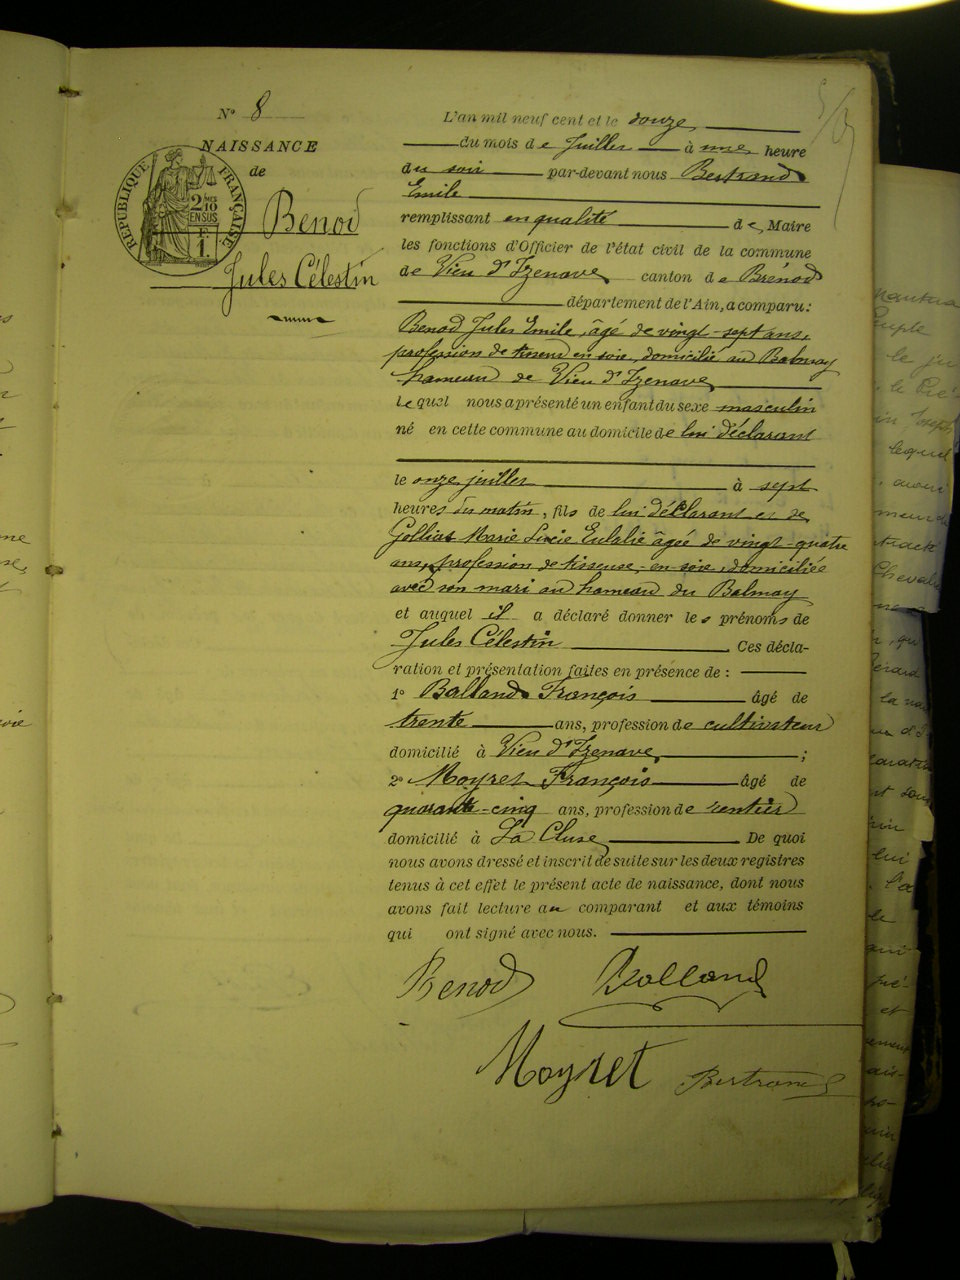 N° 8
NAISSANCE
de
RÉPUBLIQUE FRANÇAISE
2 MES 10
EN SUS
F.
1.
Benod
Jules Célestin
L'an mil neuf cent et le douze
du mois de Juillet à une heure
du soir par-devant nous Bertrand
Emile
remplissant en qualité de Maire
les fonctions d'Officier de l'état civil de la commune
de Vieu d'Izenave canton de Brénod
département de l'Ain, a comparu :
Benod Jules Emile, âgé de vingt-sept ans,
profession de tisseur en soie, domicilié au Balmay
hameau de Vieu d'Izenave
lequel nous a présenté un enfant du sexe masculin
né en cette commune au domicile de lui déclarant
le onze juillet à sept
heures du matin, fils de lui déclarant et de
Golliat Marie Lucie Eulalie âgée de vingt-quatre
ans, profession de tisseuse-en-soie, domiciliée
avec son mari au hameau du Balmay
et auquel il a déclaré donner les prénoms de
Jules Célestin Ces décla-
ration et présentation faites en présence de :
1° Balland François âgé de
trente ans, profession de cultivateur
domicilié à Vieu d'Izenave ;
2° Moyret François âgé de
quarante-cinq ans, profession de rentier
domicilié à La Cluse De quoi
nous avons dressé et inscrit de suite sur les deux registres
tenus à cet effet le présent acte de naissance, dont nous
avons fait lecture au comparant et aux témoins
qui ont signé avec nous.
Benod Balland
Moyret Bertrand